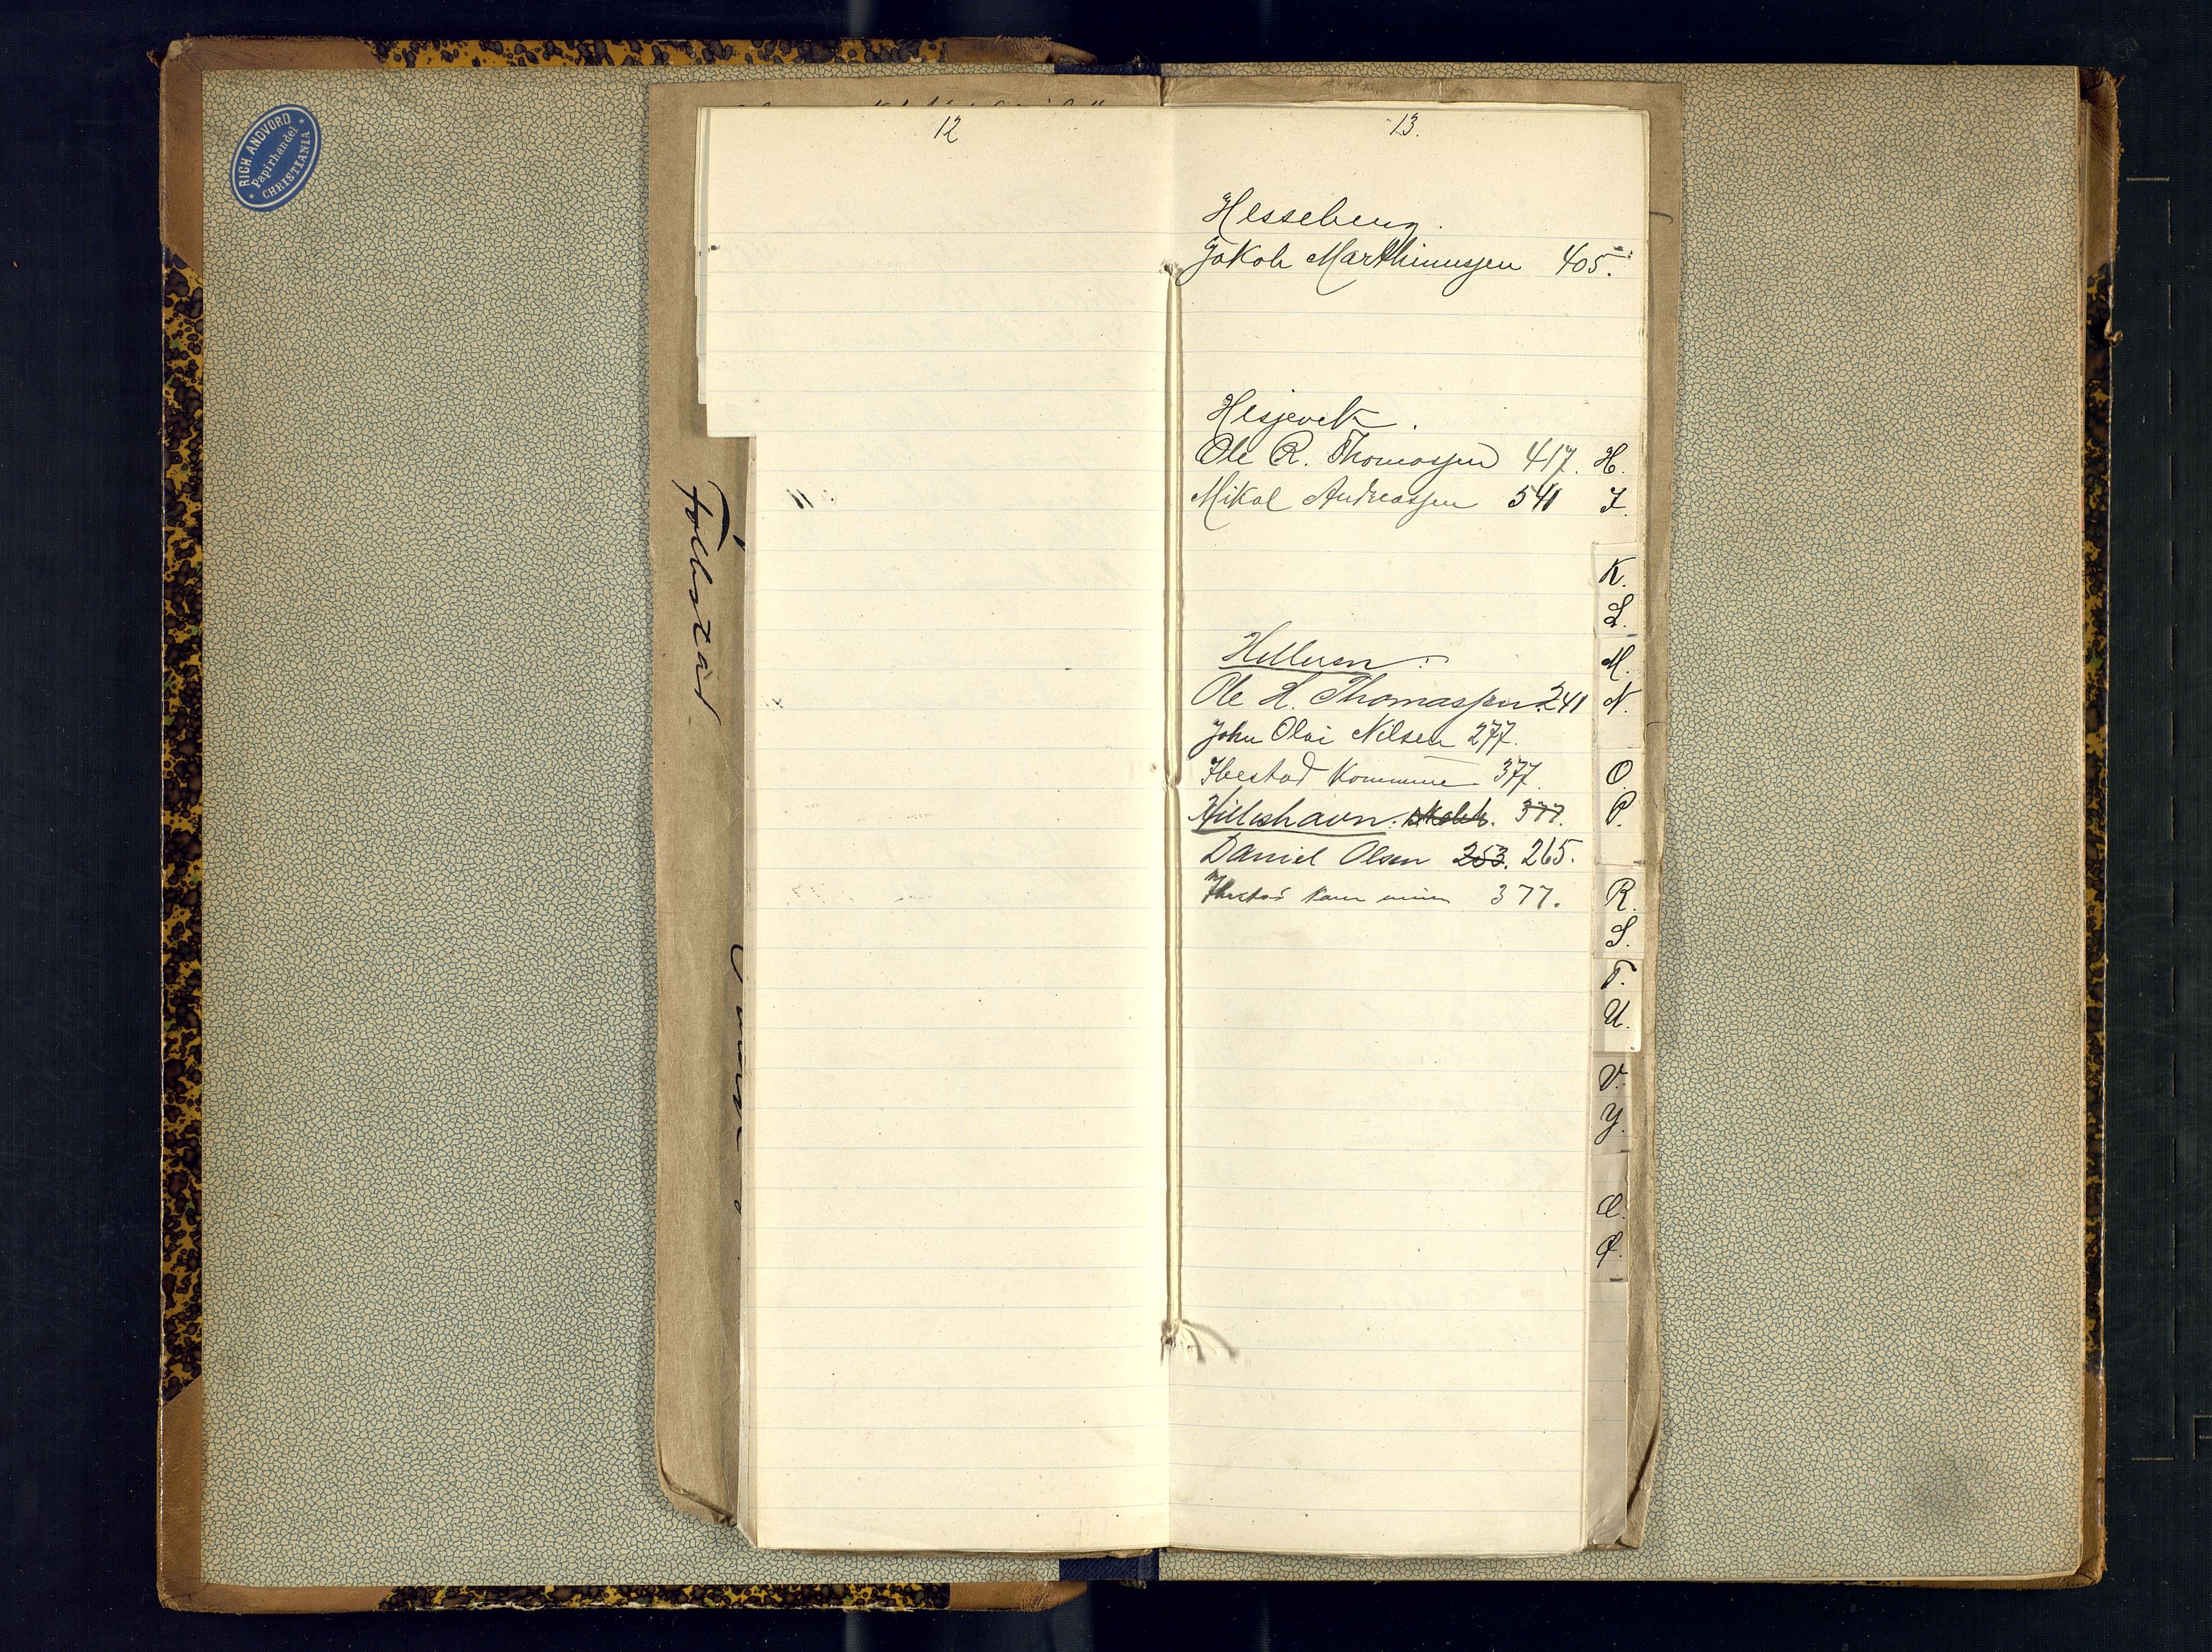 RICH. ANDVORD
Papirhandel
CHRISTIANIA
12
13.
Hesseberg.
Jakob Marthinussen 405.
Hesjevik.
Ole R. Thomassen 417.
Mikal Andreassen 541
Helleren:
Ole H. Thomassen 241
John Olai Nilsen 277.
Ibestad Kommune 377.
Hilleshavn. 377.
Daniel Olsen 253. 265.
Ibestad Kommune 377.
H.
I.
K.
L.
M.
N.
O.
P.
R.
S.
T.
U.
V.
Y.
Æ.
Ø.